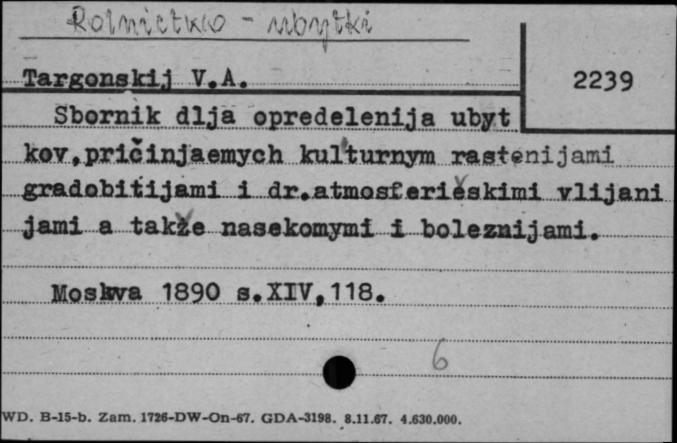 Rolnictwo - ubytki
Targonskij V.A.
2239
Sbornik dlja opredelenija ubyt
kov,pričinjaemych kul'turnym rastenijami
gradobitijami i dr.atmosferičeskimi vlijani
jami a takže nasekomymi i boleznijami.
Moskva 1890 s.XIV,118.
6
WD. B-15-b. Zam. 1726-DW-On-67. GDA-3198. 8.11.67. 4.630.000.